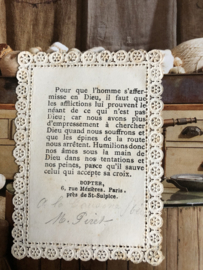 Pour que l'homme s'affer-
misse en Dieu, il faut que
les afflictions lui prouvent le
néant de ce qui n'est pas
Dieu; car nous avons plus
d'empressement à chercher
Dieu quand nous souffrons et
que les épines de la route
nous arrêtent. Humilions donc
nos âmes sous la main de
Dieu dans nos tentations et
nos peines, parce qu'il sauve
celui qui accepte sa croix.
BOPTER,
6, rue Mézières, Paris,
près de St-Sulpice.